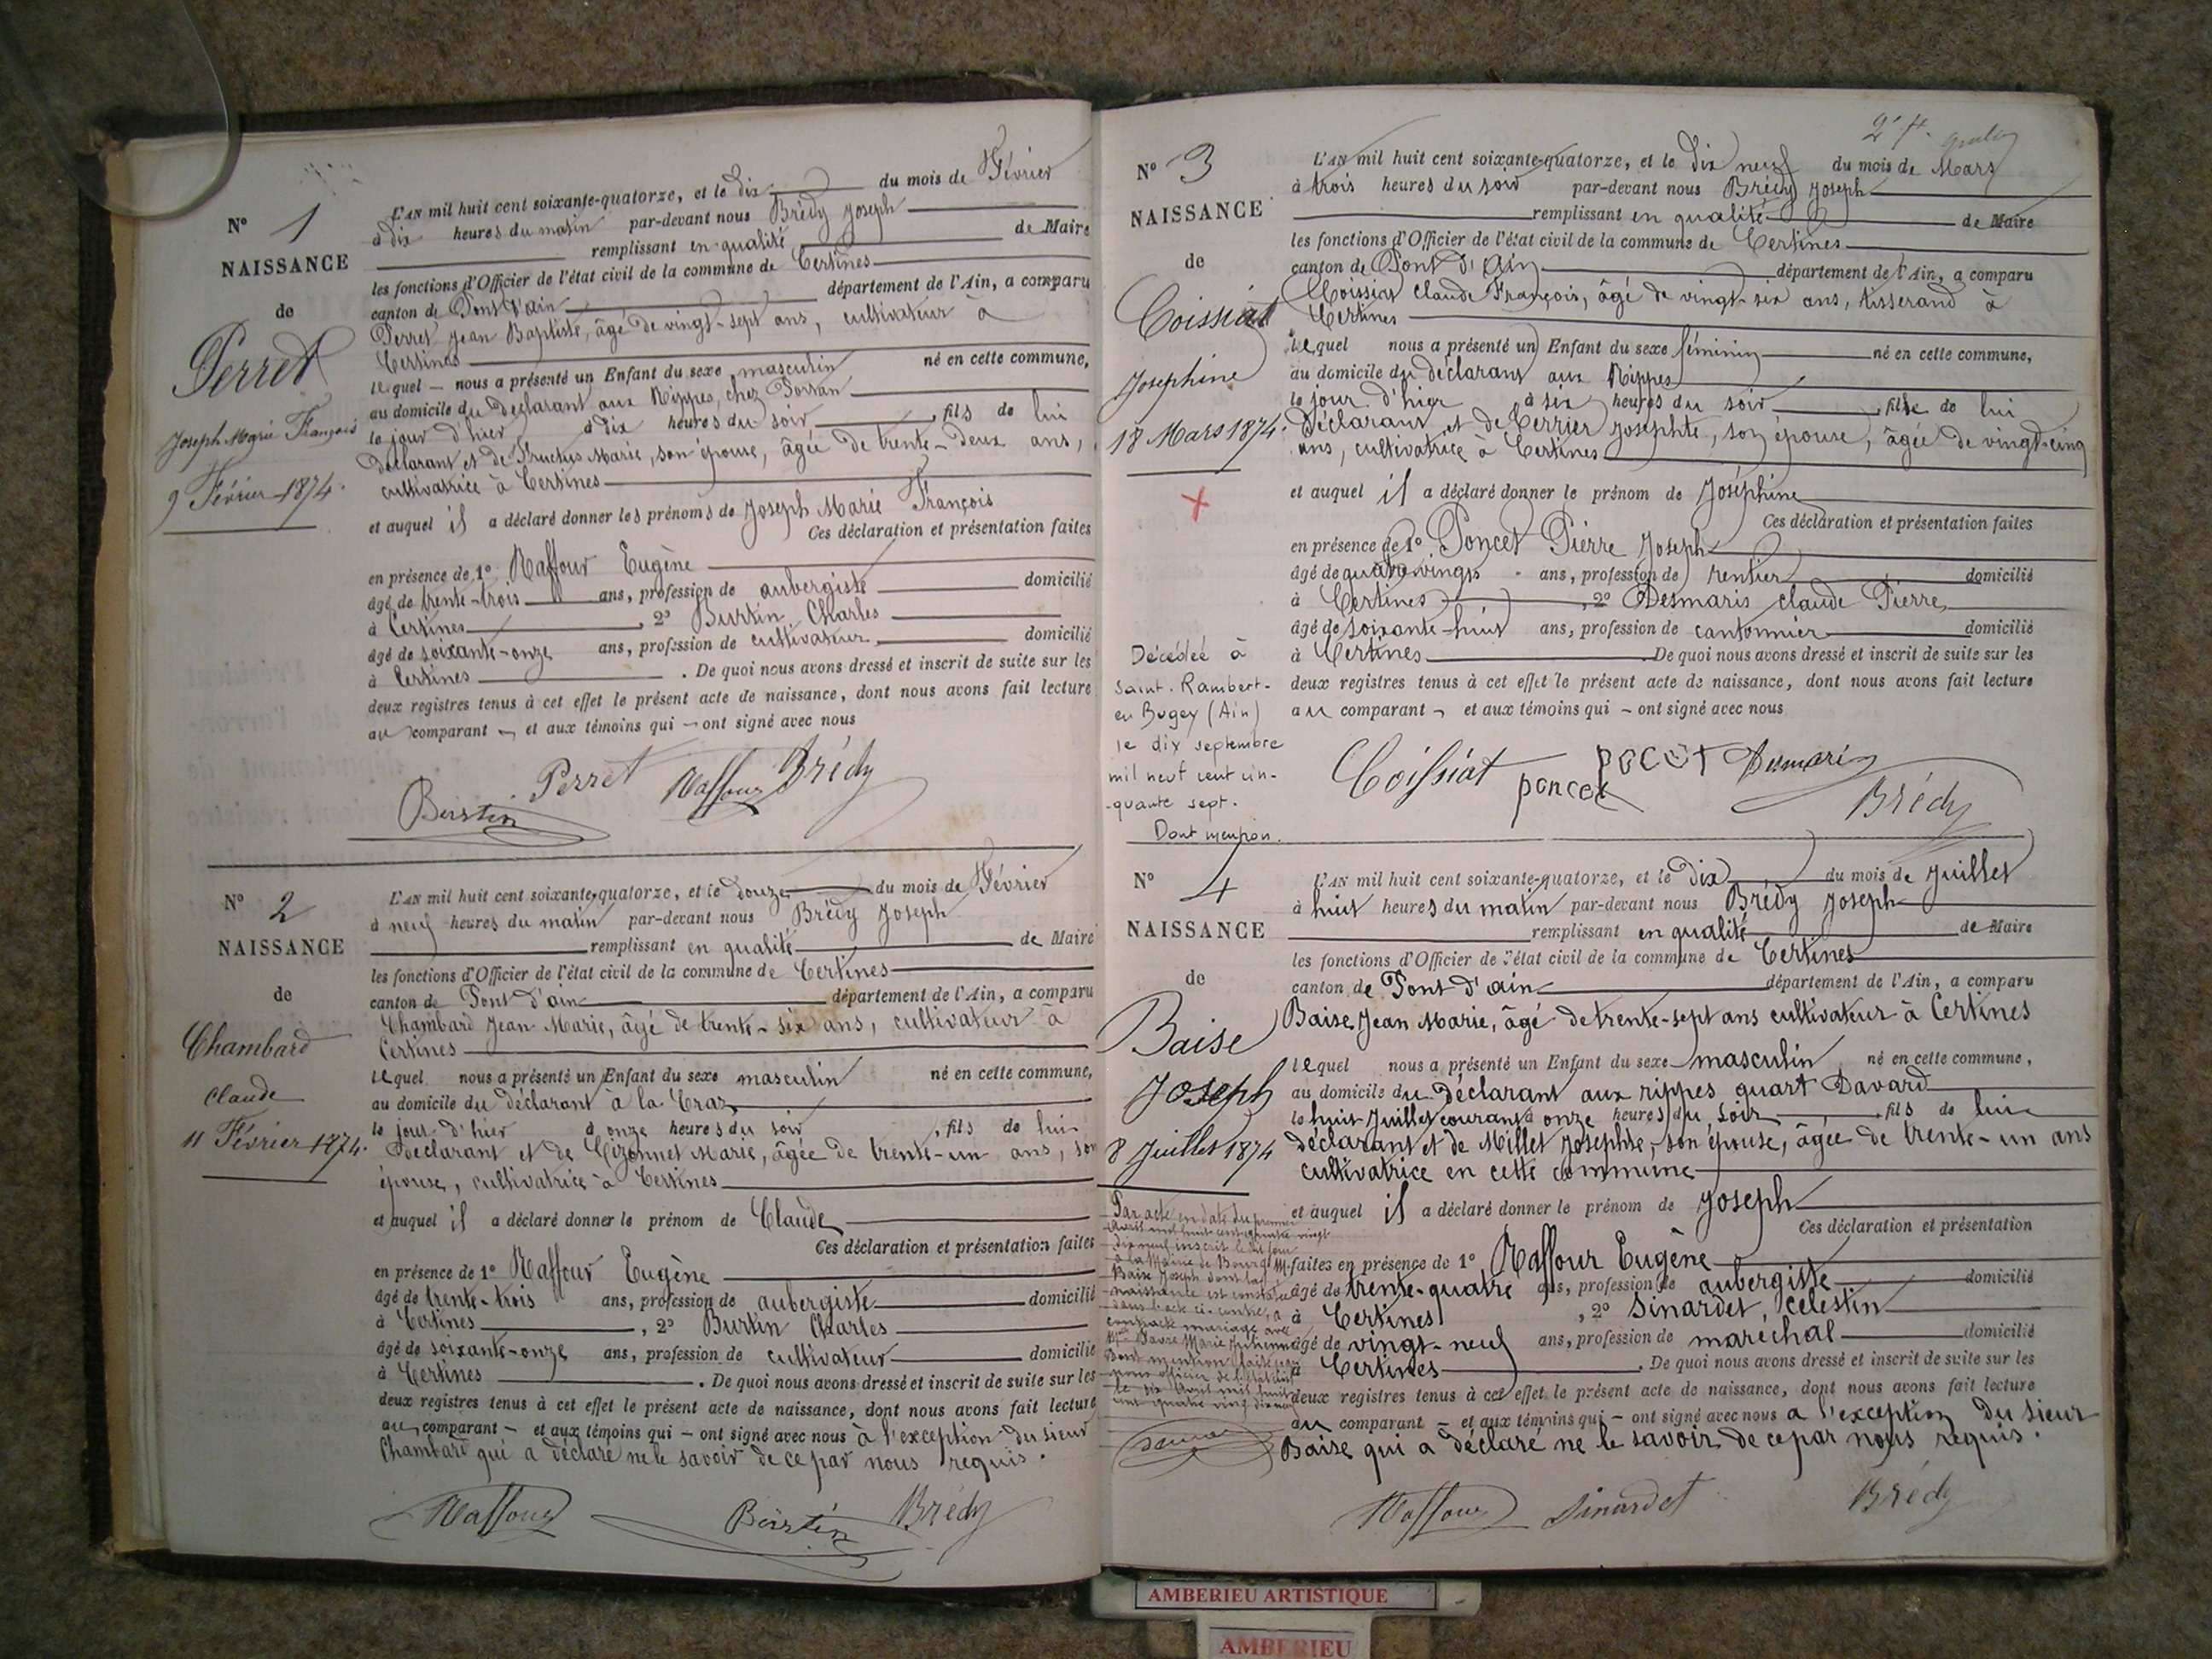 N° 1
NAISSANCE
de
Perret
Joseph Marie François
9 Février 1874.
L'AN mil huit cent soixante-quatorze, et le dix du mois de Février
à dix heures du matin par-devant nous Brédy Joseph
remplissant en qualité de Maire
les fonctions d'Officier de l'état civil de la commune de Certines
canton de Pont d'ain département de l'Ain, a comparu
Perret Jean Baptiste, âgé de vingt-sept ans, cultivateur à
Certines
lequel nous a présenté un Enfant du sexe masculin né en cette commune,
au domicile du déclarant aux Rippes, chez
le jour d'hier à dix heures du soir, fils de lui
déclarant et de Marie, son épouse, âgée de trente-deux ans,
cultivatrice à Certines
et auquel il a déclaré donner les prénoms de Joseph Marie François
Ces déclaration et présentation faites
en présence de 1° Raffour Eugène
âgé de trente-trois ans, profession de aubergiste domicilié
à Certines, 2° Burtin Charles
âgé de soixante-onze ans, profession de cultivateur domicilié
à Certines. De quoi nous avons dressé et inscrit de suite sur les
deux registres tenus à cet effet le présent acte de naissance, dont nous avons fait lecture
au comparant - et aux témoins qui - ont signé avec nous
Perret Raffour Brédy
Burtin
N° 2
NAISSANCE
de
Chambard
Claude
11 Février 1874.
L'AN mil huit cent soixante-quatorze, et le douze du mois de Février
à neuf heures du matin par-devant nous Brédy Joseph
remplissant en qualité de Maire
les fonctions d'Officier de l'état civil de la commune de Certines
canton de Pont d'ain département de l'Ain, a comparu
Chambard Jean Marie, âgé de trente-six ans, cultivateur à
Certines
lequel nous a présenté un Enfant du sexe masculin né en cette commune,
au domicile du déclarant à la Craz
le jour d'hier à onze heures du soir, fils de lui
déclarant et de Marie, âgée de trente-un ans, son
épouse, cultivatrice à Certines
et auquel il a déclaré donner le prénom de Claude
Ces déclaration et présentation faites
en présence de 1° Raffour Eugène
âgé de trente-trois ans, profession de aubergiste domicilié
à Certines, 2° Burtin Charles
âgé de soixante-onze ans, profession de cultivateur domicilié
à Certines. De quoi nous avons dressé et inscrit de suite sur les
deux registres tenus à cet effet le présent acte de naissance, dont nous avons fait lecture
au comparant - et aux témoins qui - ont signé avec nous à l'exception du sieur
Chambard qui a déclaré ne le savoir de ce par nous requis.
Raffour Burtin Brédy
N° 3
NAISSANCE
de
Coissiat
Josephine
18 Mars 1874.
Décédée à
Saint-Rambert-
en Bugey (Ain)
le dix septembre
mil neuf cent cin-
-quante sept.
Dont mention.
L'AN mil huit cent soixante-quatorze, et le dix neuf du mois de Mars
à trois heures du soir par-devant nous Brédy Joseph
remplissant en qualité de Maire
les fonctions d'Officier de l'état civil de la commune de Certines
canton de Pont d'Ain département de l'Ain, a comparu
Coissiat Claude François, âgé de vingt-six ans, tisserand à
Certines
lequel nous a présenté un Enfant du sexe féminin né en cette commune,
au domicile du déclarant aux Rippes
le jour d'hier à six heures du soir, fille de lui
déclarant et de Cerrier Josephte, son épouse, âgée de vingt-cinq
ans, cultivatrice à Certines
et auquel il a déclaré donner le prénom de Joséphine
Ces déclaration et présentation faites
en présence de 1° Poncet Pierre Joseph
âgé de quatre vingts ans, profession de rentier domicilié
à Certines, 2° Desmaris Claude Pierre
âgé de soixante-huit ans, profession de cantonnier domicilié
à Certines. De quoi nous avons dressé et inscrit de suite sur les
deux registres tenus à cet effet le présent acte de naissance, dont nous avons fait lecture
au comparant - et aux témoins qui - ont signé avec nous
Coissiat poncet pocet Dumaris
Brédy
N° 4
NAISSANCE
de
Baise
Joseph
8 Juillet 1874
Par acte en date du premier
avril mil huit cent quatre vingt
dix neuf inscrit
à la Mairie de Bourg M.
Baise Joseph dont la
naissance est constatée
dans l'acte ci-contre, a
contracté mariage avec
Marie
Dont mention faite par
nous officier de l'état civil
le six Avril mil huit
cent quatre vingt dix neuf
L'AN mil huit cent soixante-quatorze, et le dix du mois de Juillet
à huit heures du matin par-devant nous Brédy Joseph
remplissant en qualité de Maire
les fonctions d'Officier de l'état civil de la commune de Certines
canton de Pont d'ain département de l'Ain, a comparu
Baise Jean Marie, âgé de trente-sept ans cultivateur à Certines
lequel nous a présenté un Enfant du sexe masculin né en cette commune,
au domicile du déclarant aux rippes quart Davard
le huit Juillet courant à onze heures du soir, fils de lui
déclarant et de Millet Josephte, son épouse, âgée de trente-un ans
cultivatrice en cette commune
et auquel il a déclaré donner le prénom de Joseph
Ces déclaration et présentation
faites en présence de 1° Raffour Eugène
âgé de trente-quatre ans, profession de aubergiste domicilié
à Certines, 2° Sinardet, Celestin
âgé de vingt-neuf ans, profession de maréchal domicilié
à Certines. De quoi nous avons dressé et inscrit de suite sur les
deux registres tenus à cet effet le présent acte de naissance, dont nous avons fait lecture
au comparant - et aux témoins qui - ont signé avec nous à l'exception du sieur
Baise qui a déclaré ne le savoir de ce par nous requis.
Raffour Sinardet Brédy
AMBERIEU ARTISTIQUE
AMBERIEU